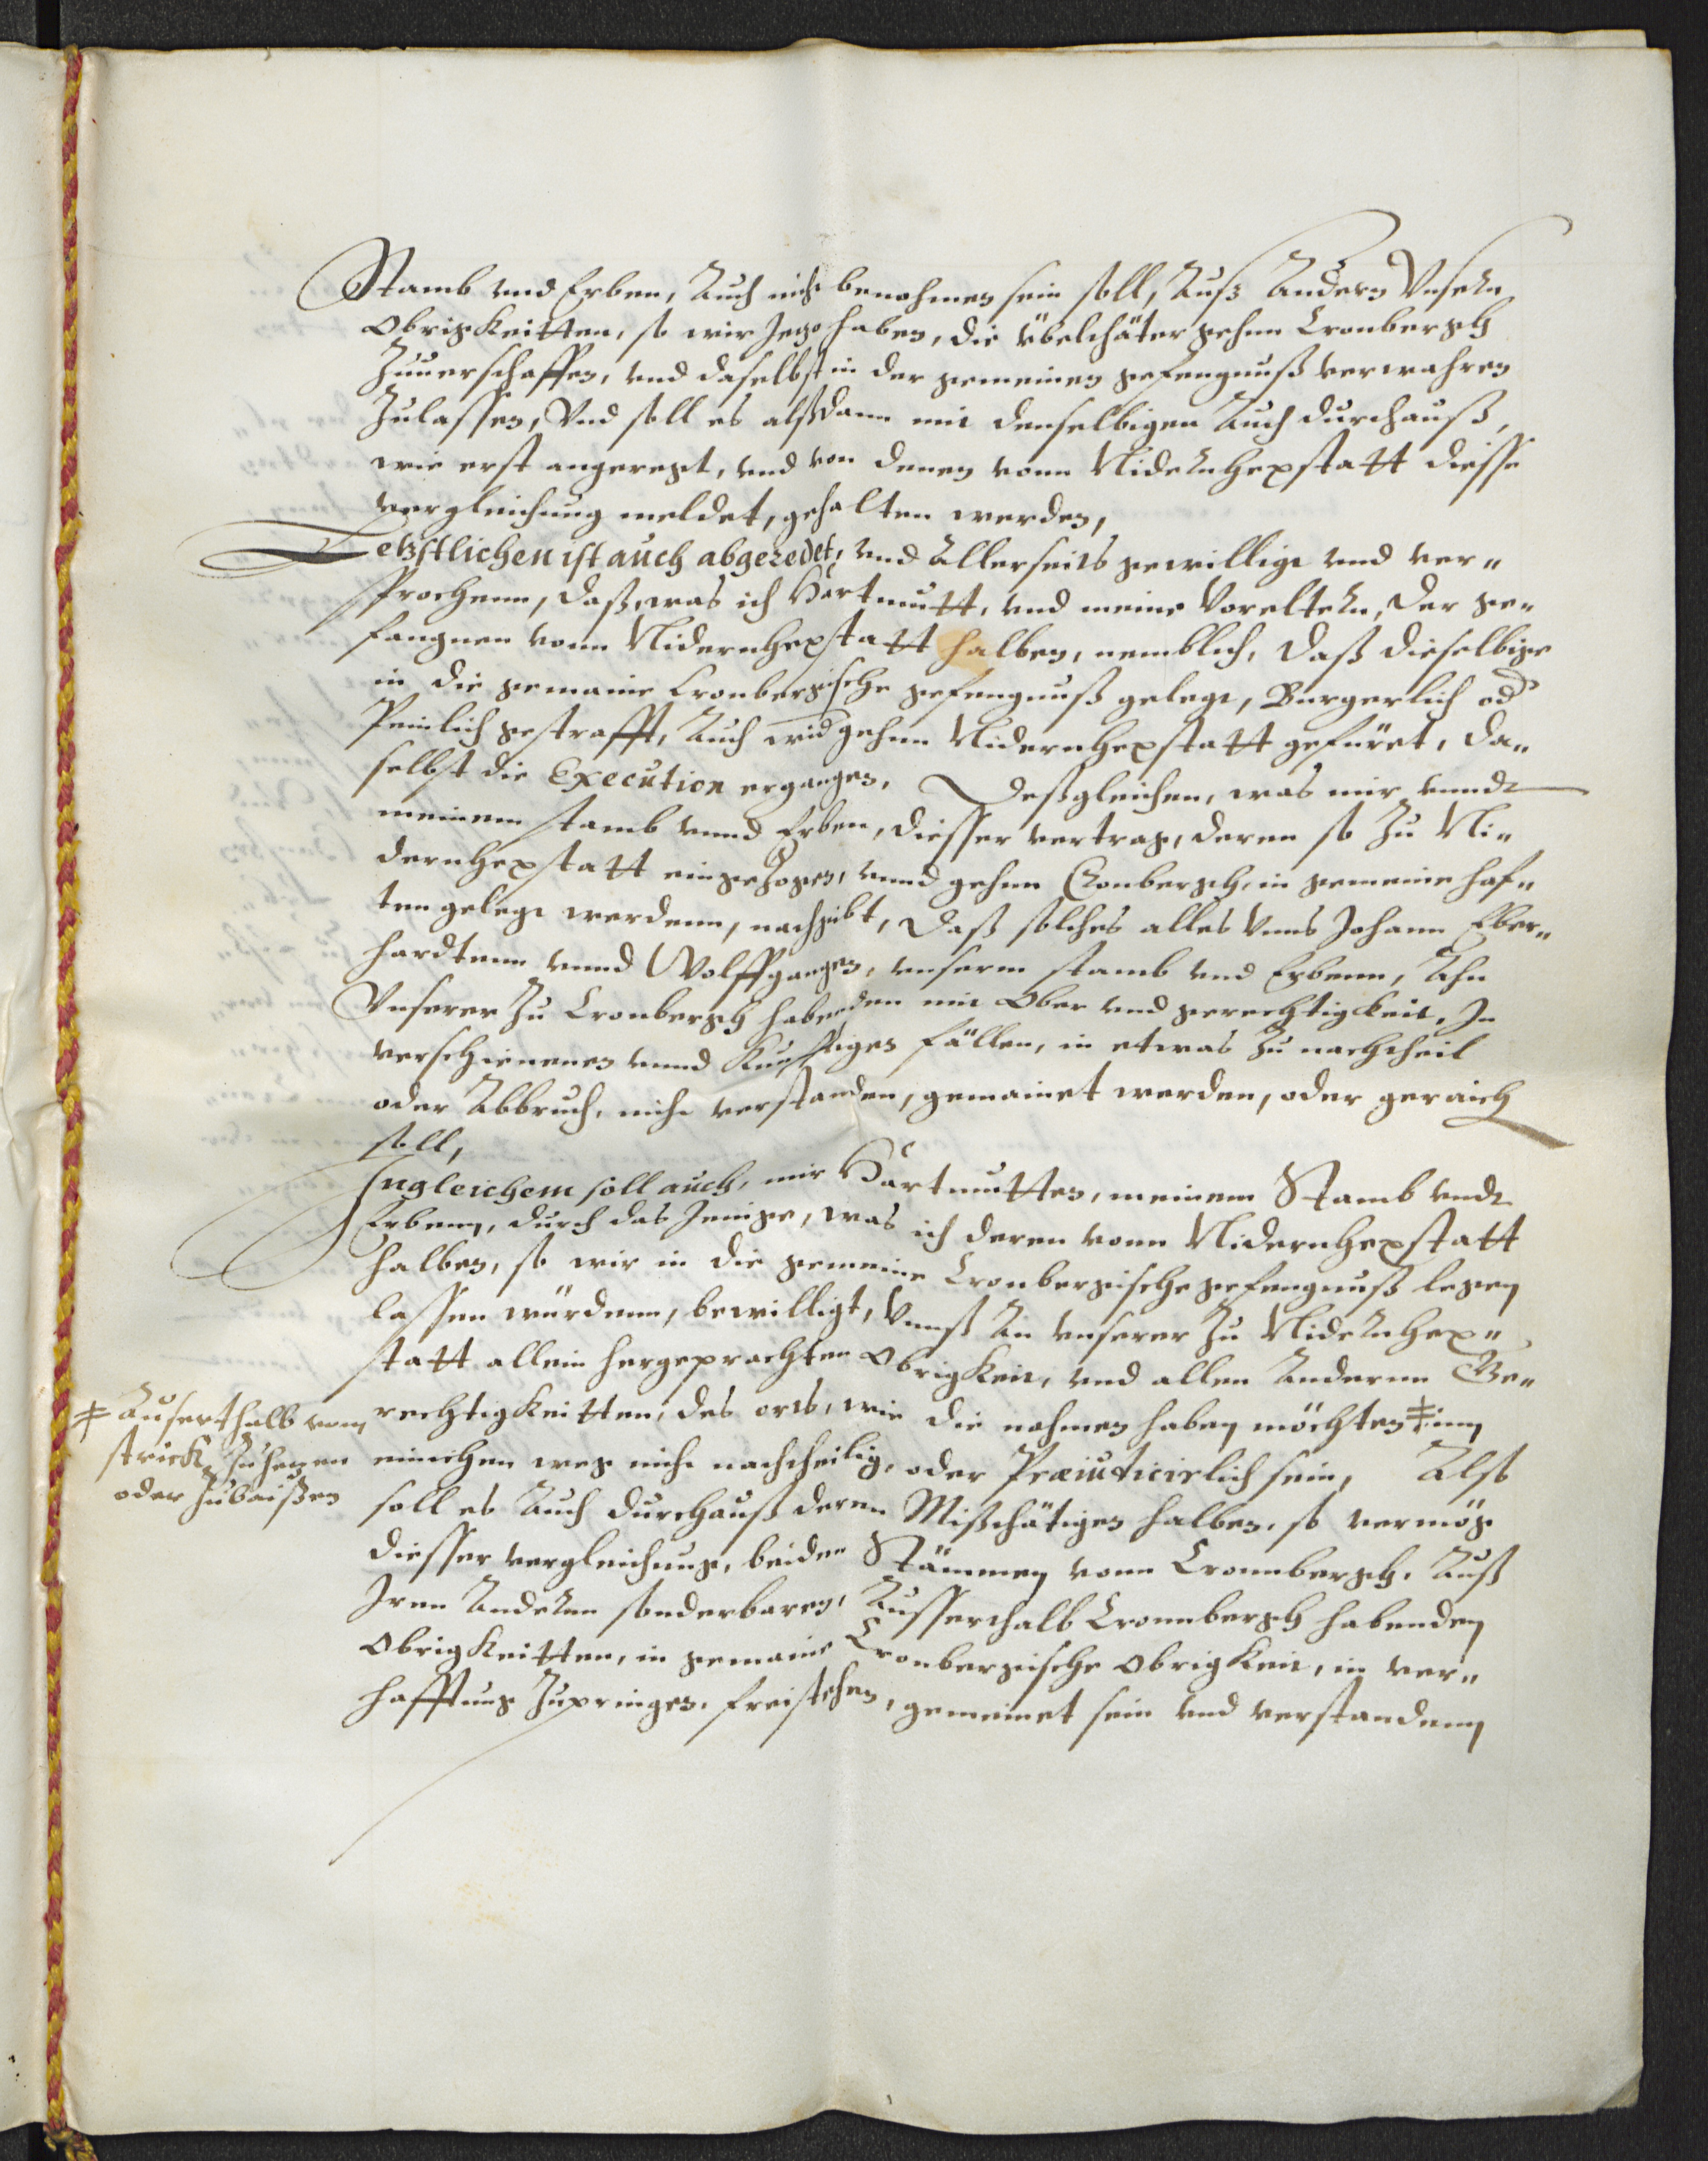 Stamb vnd Erben, Auch nicht benohmen sein soll, Auß Andern Vnseren
Obrigkeitten, so wir Jezo haben, die übelthäter gehnn Cronbergh
Zuuerschaffen, vnd daselbst in der gemeinen gefengnuß verwahren
Zulassen, Vnd soll es alßdann mit denselbigen Auch durchauß,
wie erst angeregt, vnd von denen vonn Nidernhexstatt diesse
vergleichung meldet, gehalten werden,
Letzstlichen ist auch abgeredet, vnd Allerseits gewilligt vnd ver„
sprochenn, daß, was ich Hartmutt, vnd meine Voreltern, der ge„
fangnen vonn Nidernhexstatt halben, nemblich, daß dieselbige
in die gemaine Cronbergische gefengnuß gelegt, Burgerlich od
Peinlich gestrafft, Auch wid gehnn Nidernhexstatt gefüret, da„
selbst die Execution ergangen, Deßgleichen, was mir vnndt
meinem stamb vnnd Erben, diesser vertrag, deren so Zu Ni„
dernhexstatt eingezogen, vnnd gehnn Cronbergh, in gemeine haf„
ten gelegt werdenn, nachgibt, daß solches alles Vnns Johann Eber„
hardtenn vnnd Wolffgangen, vnserm stamb vnd Erbenn, Ahn
Vnserer Zu Cronbergh habenden mit Ober vnd gerechtigkeit, In
verschienenen vnnd Künfftigen fällen, in etwas Zu nachtheil
oder Abbruch, nicht verstanden, gemainet werden, oder geraich
soll,
Ingleichem soll auch, mir Hartmutten, meinem Stamb vndt
Erbenn, durch das Jenige, was ich deren vonn Nidernhexstatt
halben, so wir in die gemeine Cronbergische gefengnuß legen
lassen würdenn, bewilligt, Vnnß An vnserer Zu Nidernhex„
statt allein hergeprachten Obrigkeit, vnd allen Anderen Ge„
rechtigkeitten, des orts, wie die nahmen haben möchten ‡ inn
‡ Auserthalb vom
strick, Zu hezen
oder Zubaißen
einichen weg nicht nachtheilig, oder Præiuticirlich sein, Also
soll es Auch durchauß deren Mißthätigen halben, so vermög
diesser vergleichung, beiden Stämmen vonn Cronnbergh, Auß
Iren Anderen sonderbaren, Ausserthalb Cronnbergh habenden
Obrigkeitten, in gemaine Cronbergische Obrigkeit, in ver„
hafftung Zupringen, freistehen, gemeinet sein vnd verstandenn